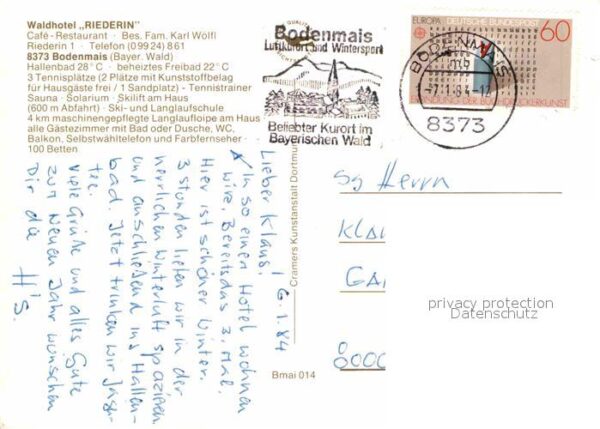 Waldhotel „RIEDERIN"
Café - Restaurant · Bes. Fam. Karl Wölfl
Riederin 1 · Telefon (0 99 24) 8 61
8373 Bodenmais (Bayer. Wald)
Hallenbad 28° C - beheiztes Freibad 22° C
3 Tennisplätze (2 Plätze mit Kunststoffbelag
für Hausgäste frei / 1 Sandplatz) - Tennistrainer
Sauna - Solarium - Skilift am Haus
(600 m Abfahrt) - Ski- und Langlaufschule
4 km maschinengepflegte Langlaufloipe am Haus
alle Gästezimmer mit Bad oder Dusche, WC,
Balkon, Selbstwähltelefon und Farbfernseher ·
100 Betten
Bodenmais
Luftkurort und Wintersport
Beliebter Kurort im
Bayerischen Wald
EUROPA DEUTSCHE BUNDESPOST 60
ERFINDUNG DER BUCHDRUCKERKUNST
BODENMAIS
mb
-7.1.84-12
8373
6.1.84
Lieber Klaus!
In so einem Hotel wohnen
wir, Bereits das 3. Mal.
Hier ist schöner Winter.
3 Stunden liefen wir in der
herrlichen Winterluft spazieren
und anschließend ins Hallen-
bad. Jetzt trinken wir Jäger-
tee.
Viele Grüße und alles Gute
zum Neuen Jahr wünschen
Dir die
H's.
Cramers Kunstanstalt Dortmund
Bmai 014
Sg Herrn
Kla
Ga
8000
privacy protection
Datenschutz